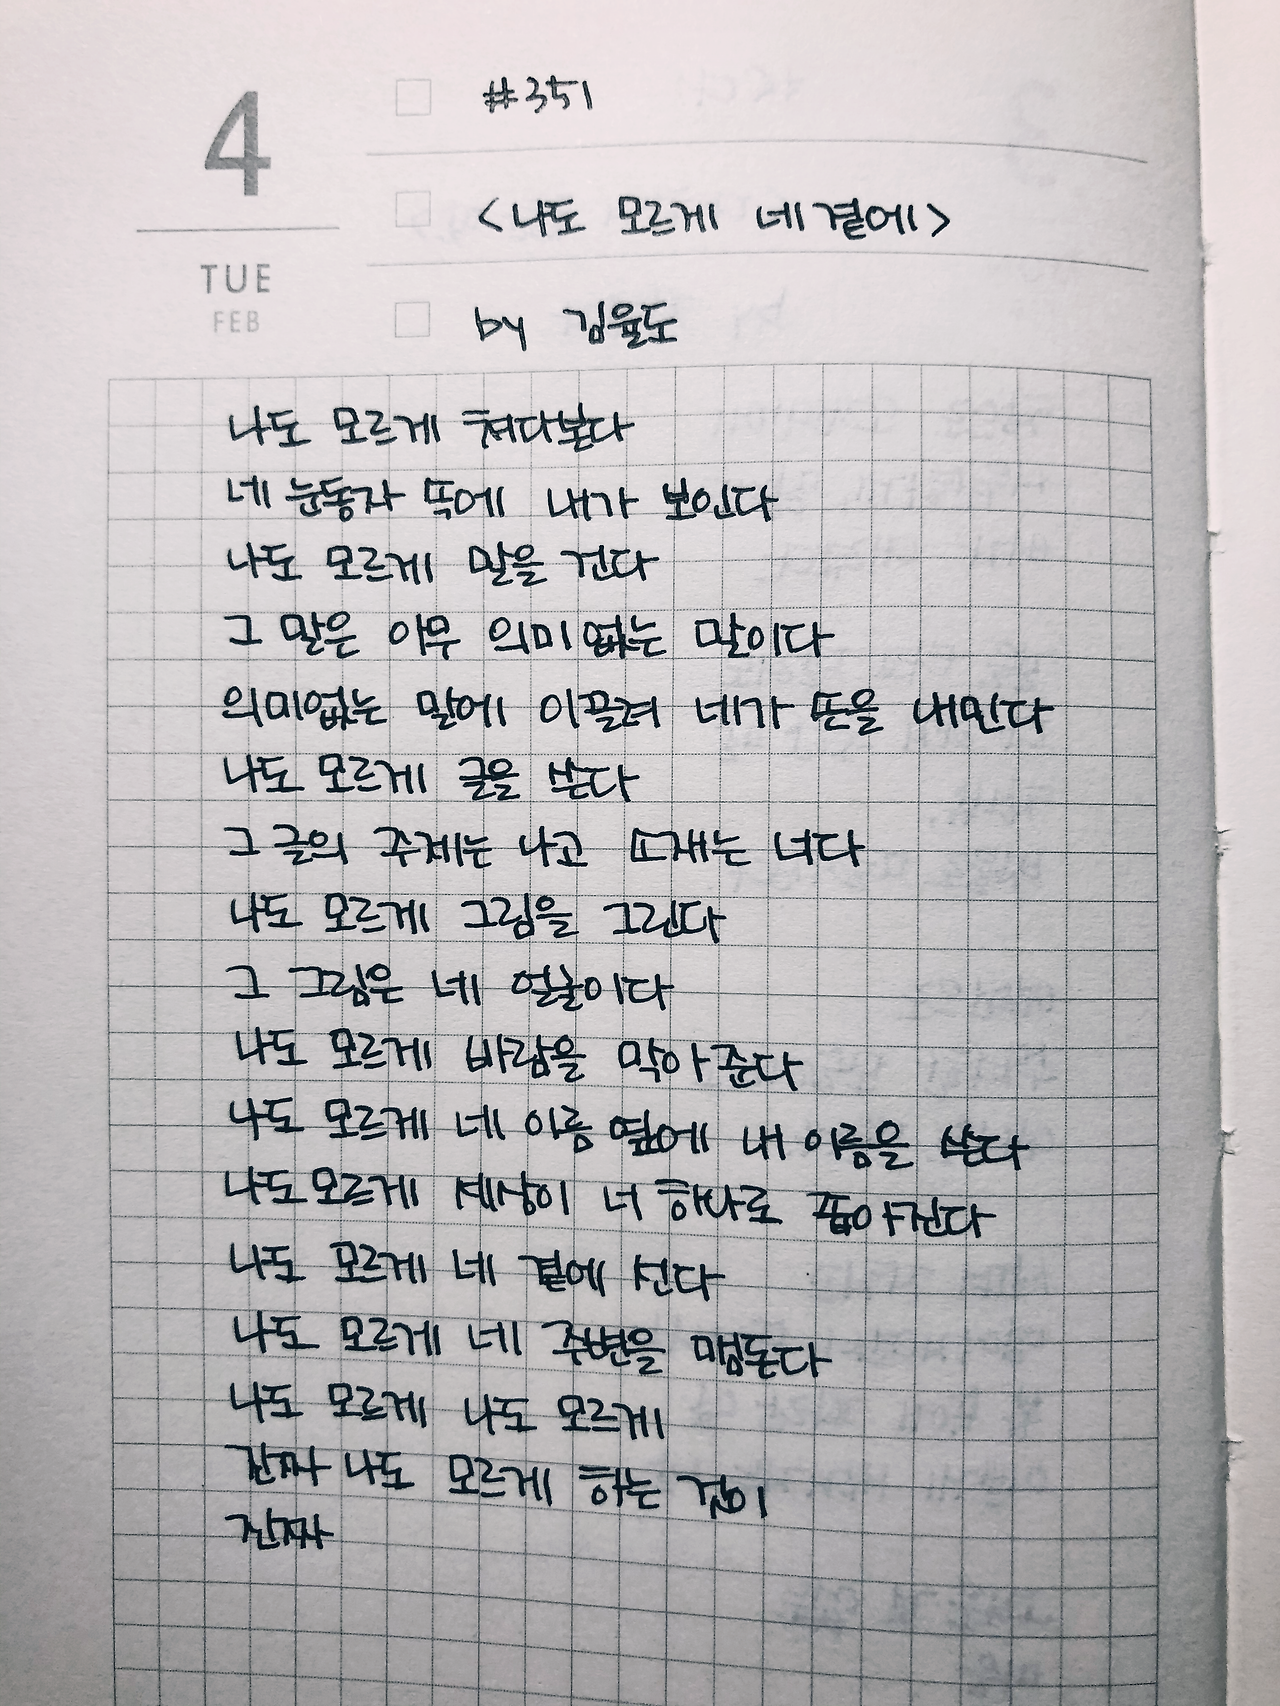 4
TUE
FEB
#351
<나도 모르게 네 곁에>
by 김율도
나도 모르게 쳐다본다
네 눈동자 속에 내가 보인다
나도 모르게 말을 건다
그 말은 아무 의미 없는 말이다
의미없는 말에 이끌려 네가 손을 내민다
나도 모르게 글을 쓴다
그 글의 주제는 나고 소재는 너다
나도 모르게 그림을 그린다
그 그림은 네 얼굴이다
나도 모르게 바람을 막아 준다
나도 모르게 네 이름 옆에 내 이름을 쓴다
나도 모르게 세상이 너 하나로 좁아진다
나도 모르게 네 곁에 선다
나도 모르게 네 주변을 맴돈다
나도 모르게 나도 모르게
진짜 나도 모르게 하는 것이
진짜